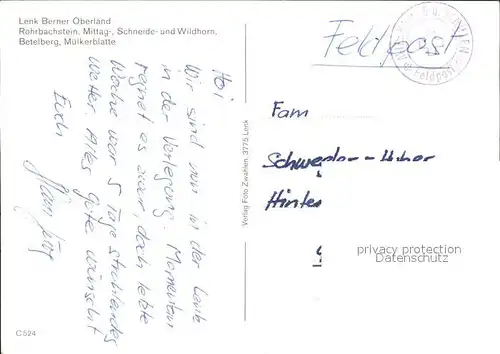 Lenk Berner Oberland
Rohrbachstein, Mittag-, Schneide- und Wildhorn,
Betelberg, Mülkerblatte
Hoi
Wir sind nun in der Lenk
in der Verlegung. Momentan
regnet es zwar, doch letzte
Woche war 5 Tage strahlendes
Wetter. Alles Gute wünscht
Euch
Hans Jürg
C 524
Verlag Foto Zwahlen, 3775 Lenk
Feldpost
Feldpost
Fam
Hinter
privacy protection
Datenschutz